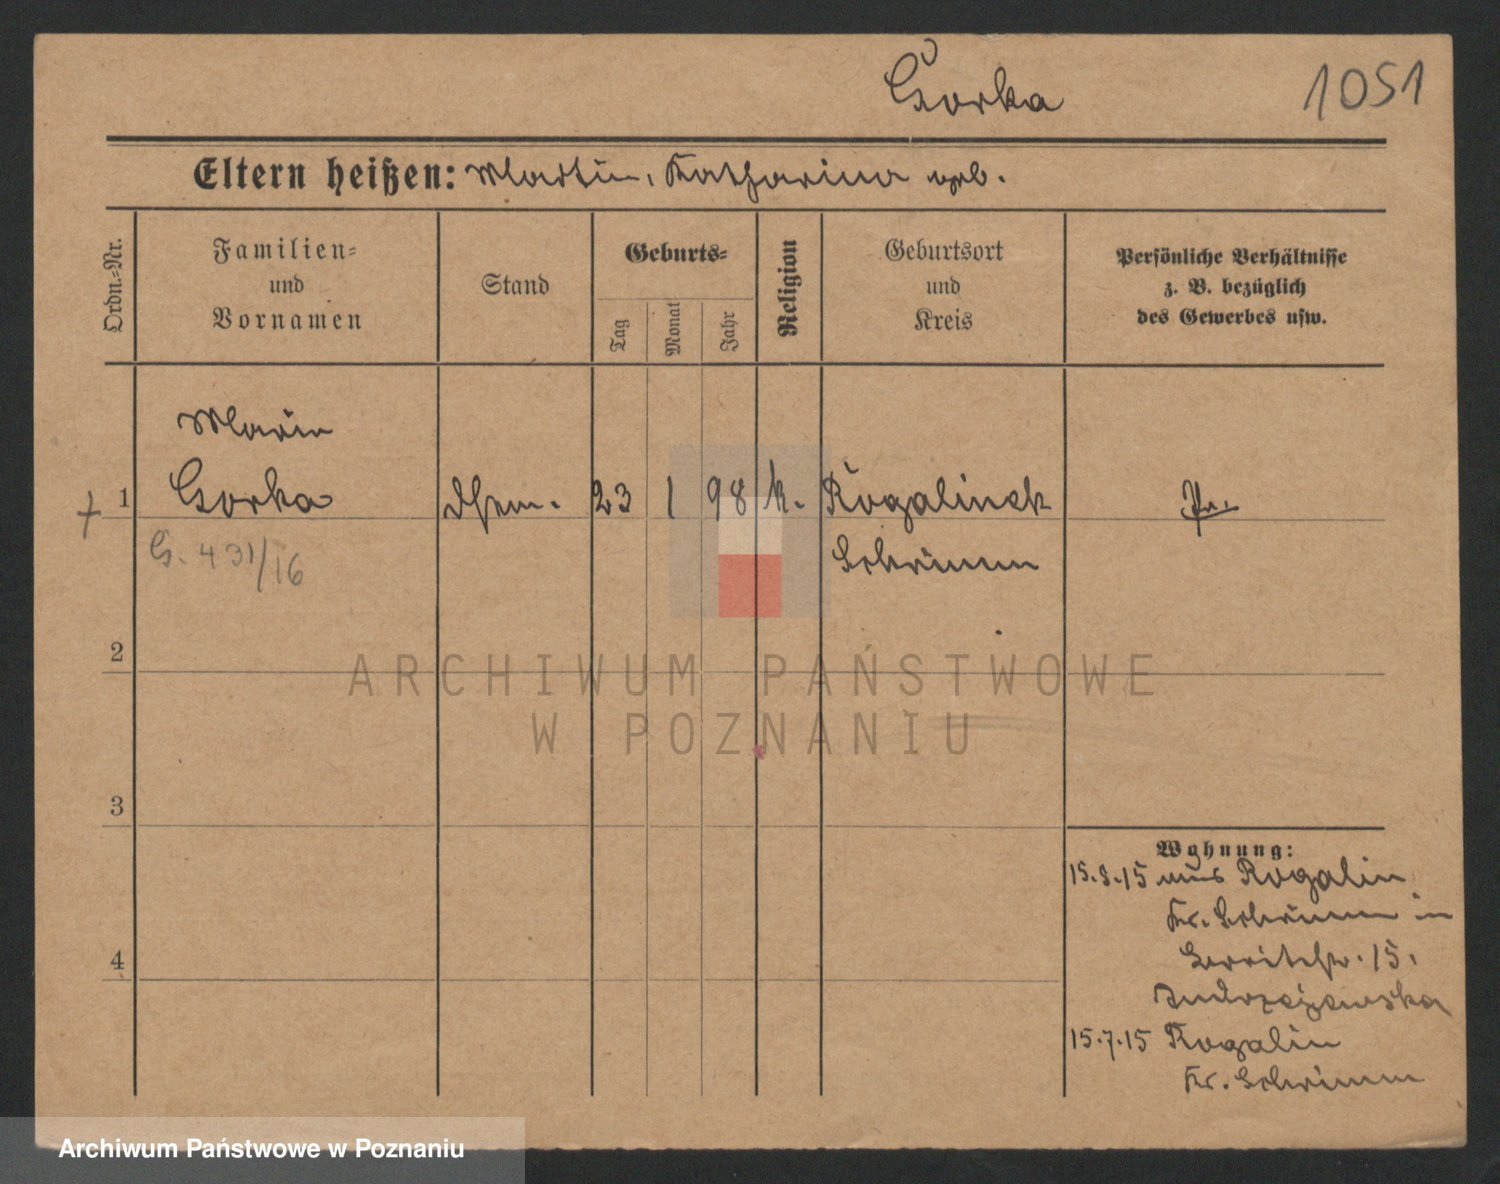 Gorka
1051
Eltern heißen: Martin, Katharina geb.
Ordn.-Nr.
Familien-
und
Vornamen
Stand
Geburts-
Tag
Monat
Jahr
Religion
Geburtsort
und
Kreis
Persönliche Verhältnisse
z. B. bezüglich
des Gewerbes usw.
Marie
1 Gorka 23 1 98 k. Rogalinek Pr.
G. 431/16
Schrimm
2
3
4
ARCHIWUM PAŃSTWOWE
W POZNANIU
Wohnung:
15.3.15 aus Rogalin
Kr. Schrimm in
15.
Andrzejewska
15.7.15 Rogalin
Kr. Schrimm
Archiwum Państwowe w Poznaniu